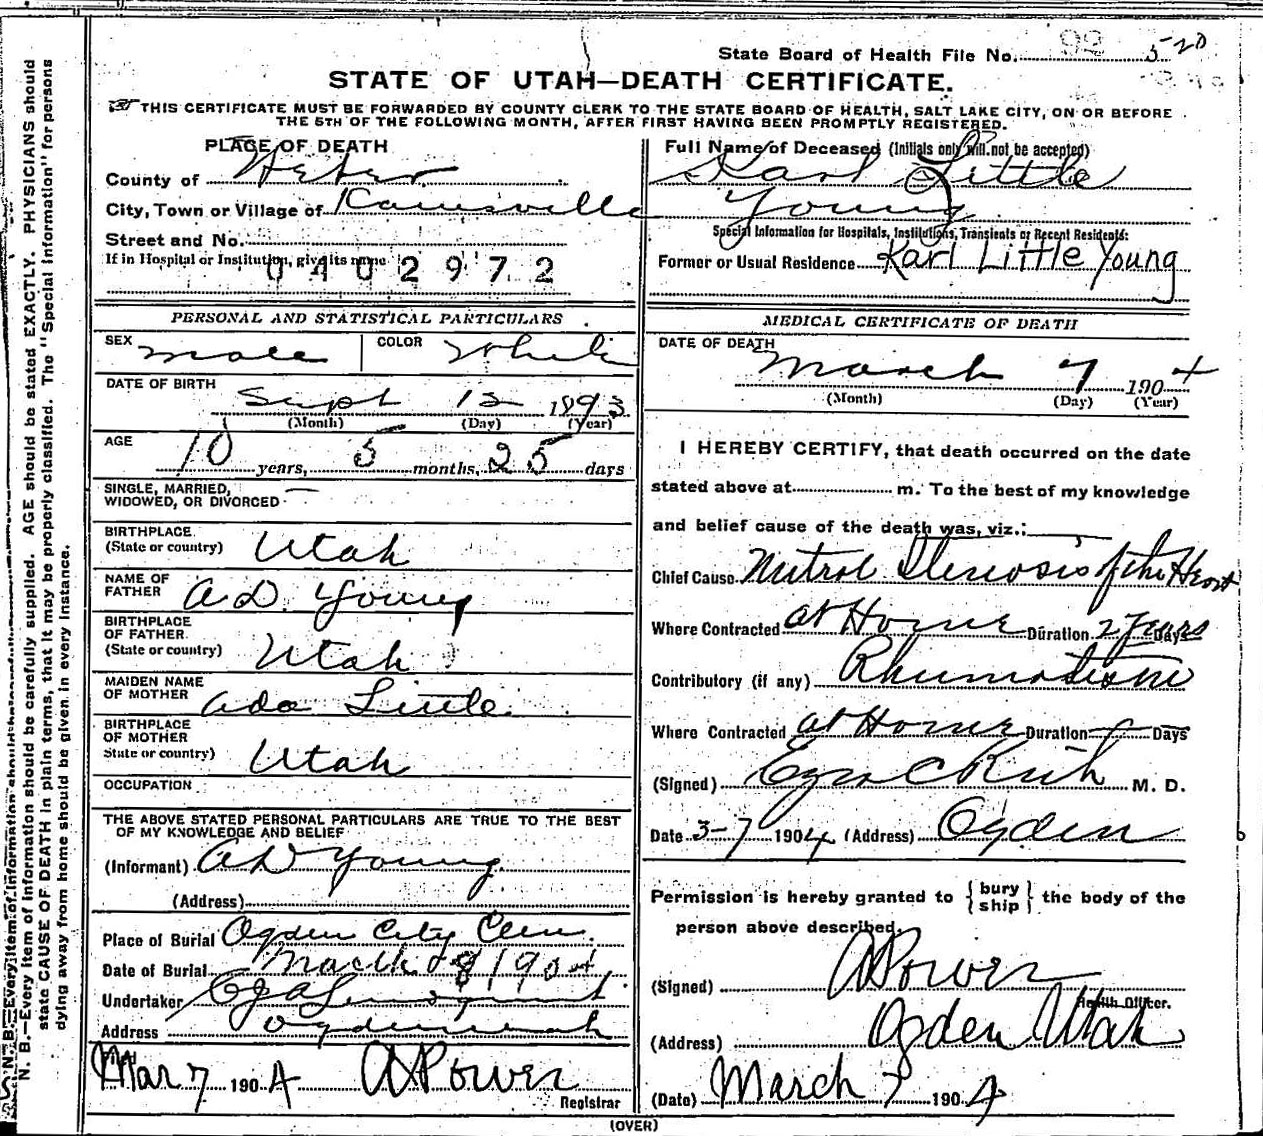 State Board of Health File No. 92 5-20
STATE OF UTAH—DEATH CERTIFICATE.
THIS CERTIFICATE MUST BE FORWARDED BY COUNTY CLERK TO THE STATE BOARD OF HEALTH, SALT LAKE CITY, ON OR BEFORE
THE 5TH OF THE FOLLOWING MONTH, AFTER FIRST HAVING BEEN PROMPTLY REGISTERED.
PLACE OF DEATH
County of Weber
City, Town or Village of Kanesville
Street and No.
If in Hospital or Institution, give its name
0402972
Full Name of Deceased (Initials only will not be accepted)
Karl Little
Young
Special Information for Hospitals, Institutions, Transients or Recent Residents:
Former or Usual Residence Karl Little Young
PERSONAL AND STATISTICAL PARTICULARS
SEX male COLOR White
DATE OF BIRTH
Sept 12 1893
(Month) (Day) (Year)
AGE
10 years, 5 months, 25 days
SINGLE, MARRIED,
WIDOWED, OR DIVORCED —
BIRTHPLACE
(State or country) Utah
NAME OF
FATHER A D. Young
BIRTHPLACE
OF FATHER
(State or country) Utah
MAIDEN NAME
OF MOTHER Ada Little
BIRTHPLACE
OF MOTHER
State or country) Utah
OCCUPATION
THE ABOVE STATED PERSONAL PARTICULARS ARE TRUE TO THE BEST
OF MY KNOWLEDGE AND BELIEF
(Informant) A D Young
(Address)
Place of Burial Ogden City Cem.
Date of Burial March 8 1904
Undertaker
Address Ogden Utah
Filed
Mar 7 1904 A Power
Registrar
MEDICAL CERTIFICATE OF DEATH
DATE OF DEATH
March 7 1904
(Month) (Day) (Year)
I HEREBY CERTIFY, that death occurred on the date
stated above at m. To the best of my knowledge
and belief cause of the death was, viz.:
Chief Cause Mitral Stenosis of the Heart
Where Contracted at Home Duration 2 Years Days
Contributory (if any) Rhumatism
Where Contracted at Home Duration Days
(Signed) Ezra C Rich M. D.
Date 3-7 1904 (Address) Ogden
Permission is hereby granted to {bury ship} the body of the
person above described.
(Signed) A Power
Health Officer.
(Address) Ogden Utah
(Date) March 7 1904
(OVER)
N. B.—Every item of information should be carefully supplied. AGE should be stated EXACTLY. PHYSICIANS should
state CAUSE OF DEATH in plain terms, that it may be properly classified. The "Special Information" for persons
dying away from home should be given in every instance.